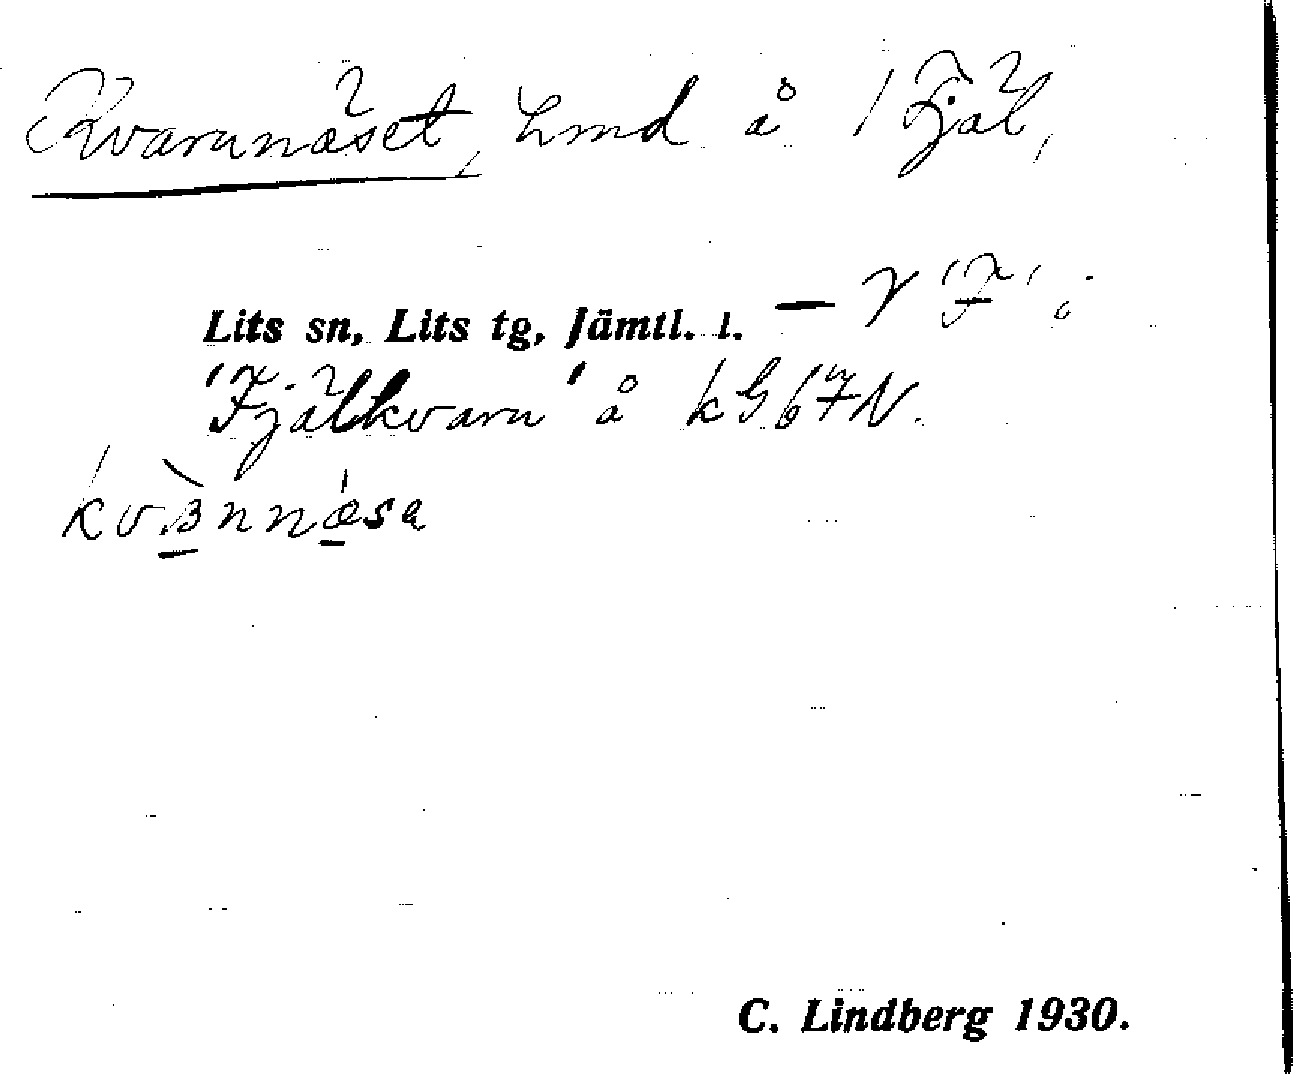 Kvarnnäset, Lmd å 1 Fjäl,
Lits sn, Lits tg, Jämtl. l. — V 'F' i
'Fjälkvarn' å kG67N.
C. Lindberg 1930.